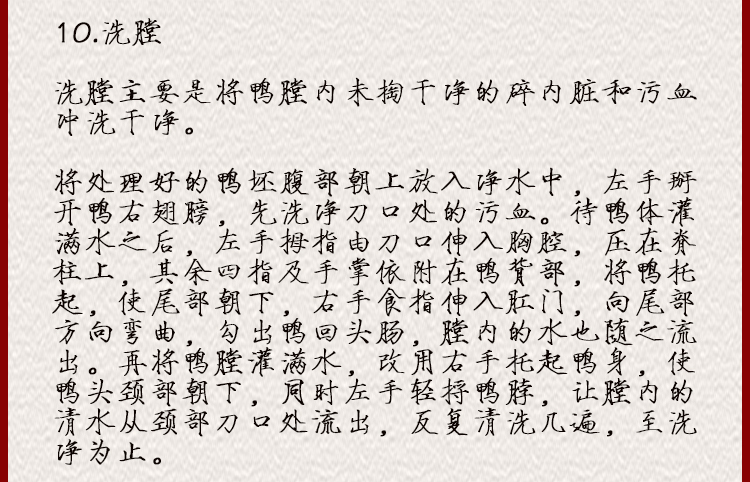 10.洗膛
洗膛主要是将鸭膛内未掏干净的碎内脏和污血
冲洗干净。
将处理好的鸭坯腹部朝上放入净水中，左手掰
开鸭右翅膀，先洗净刀口处的污血。待鸭体灌
满水之后，左手拇指由刀口伸入胸腔，压在脊
柱上，其余四指及手掌依附在鸭背部，将鸭托
起，使尾部朝下，右手食指伸入肛门，向尾部
方向弯曲，勾出鸭回头肠，膛内的水也随之流
出。再将鸭膛灌满水，改用右手托起鸭身，使
鸭头颈部朝下，同时左手轻捋鸭脖，让膛内的
清水从颈部刀口处流出，反复清洗几遍，至洗
净为止。